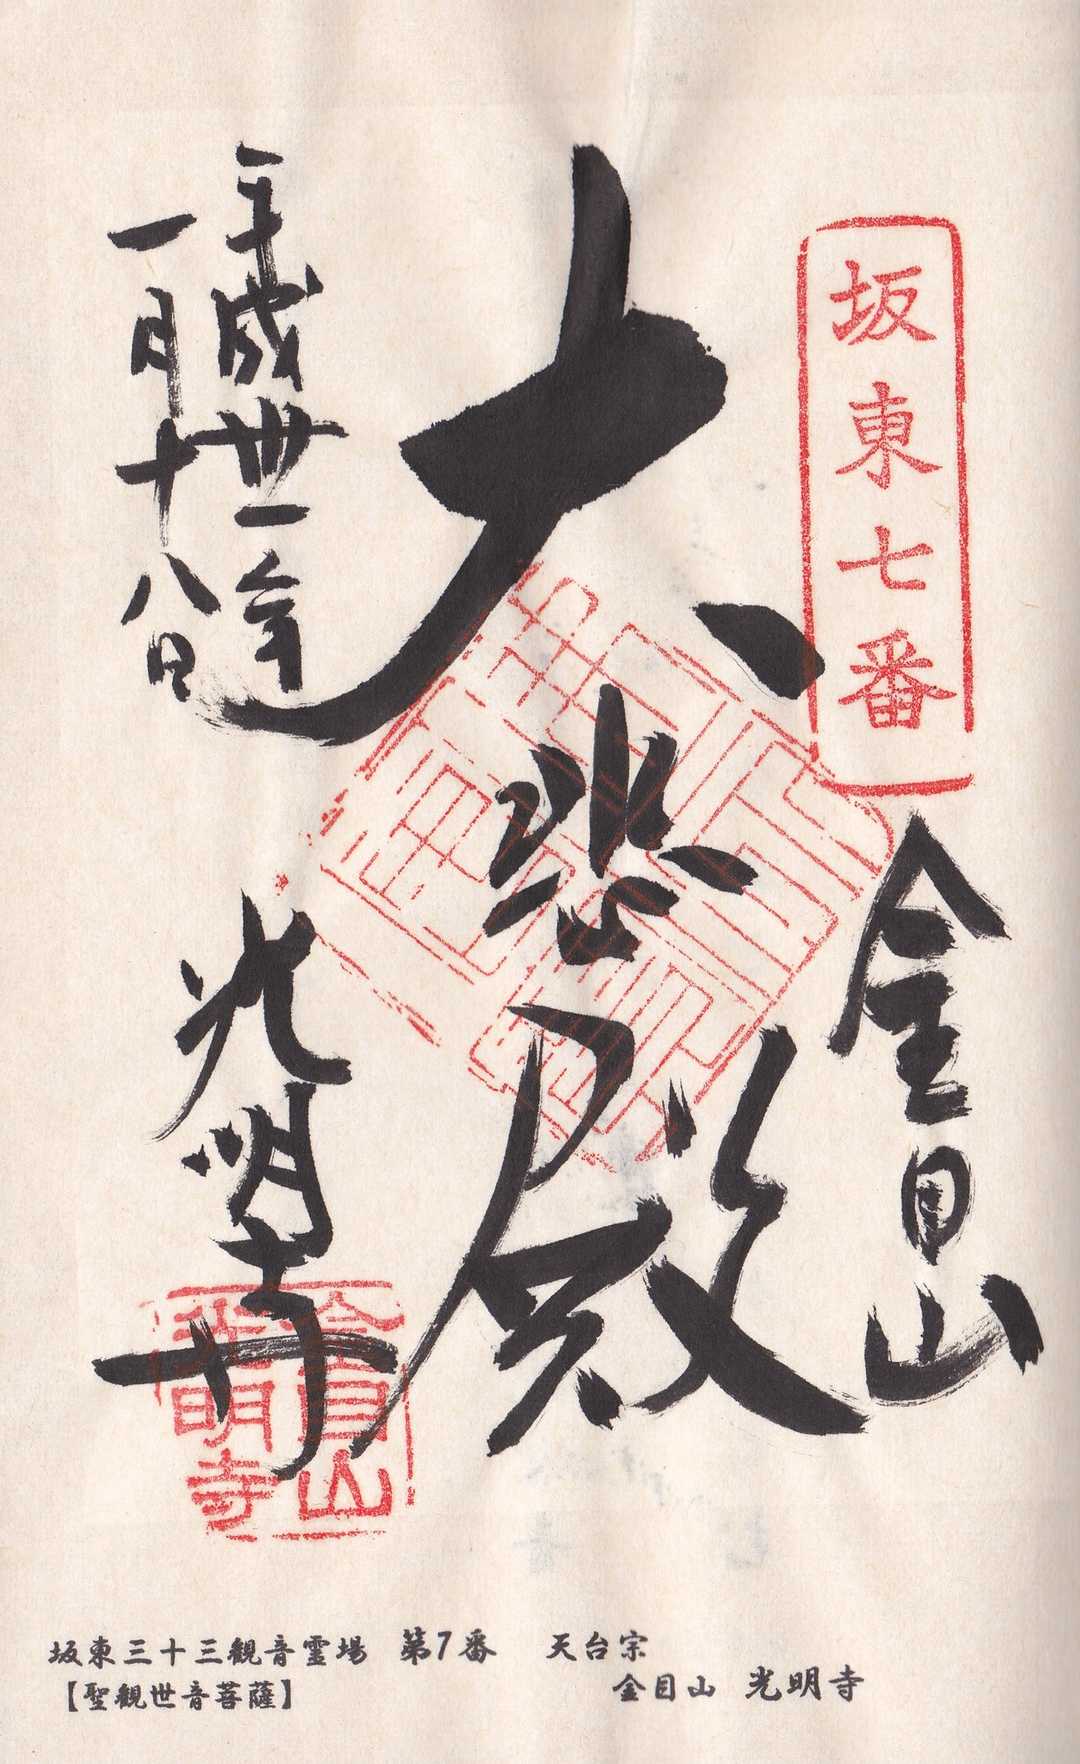 坂東七番
金目山
大悲殿
平成卅一年
一月十八日
光明寺
金目山
光明寺
坂東三十三観音霊場 第7番 天台宗
【聖観世音菩薩】 金目山 光明寺